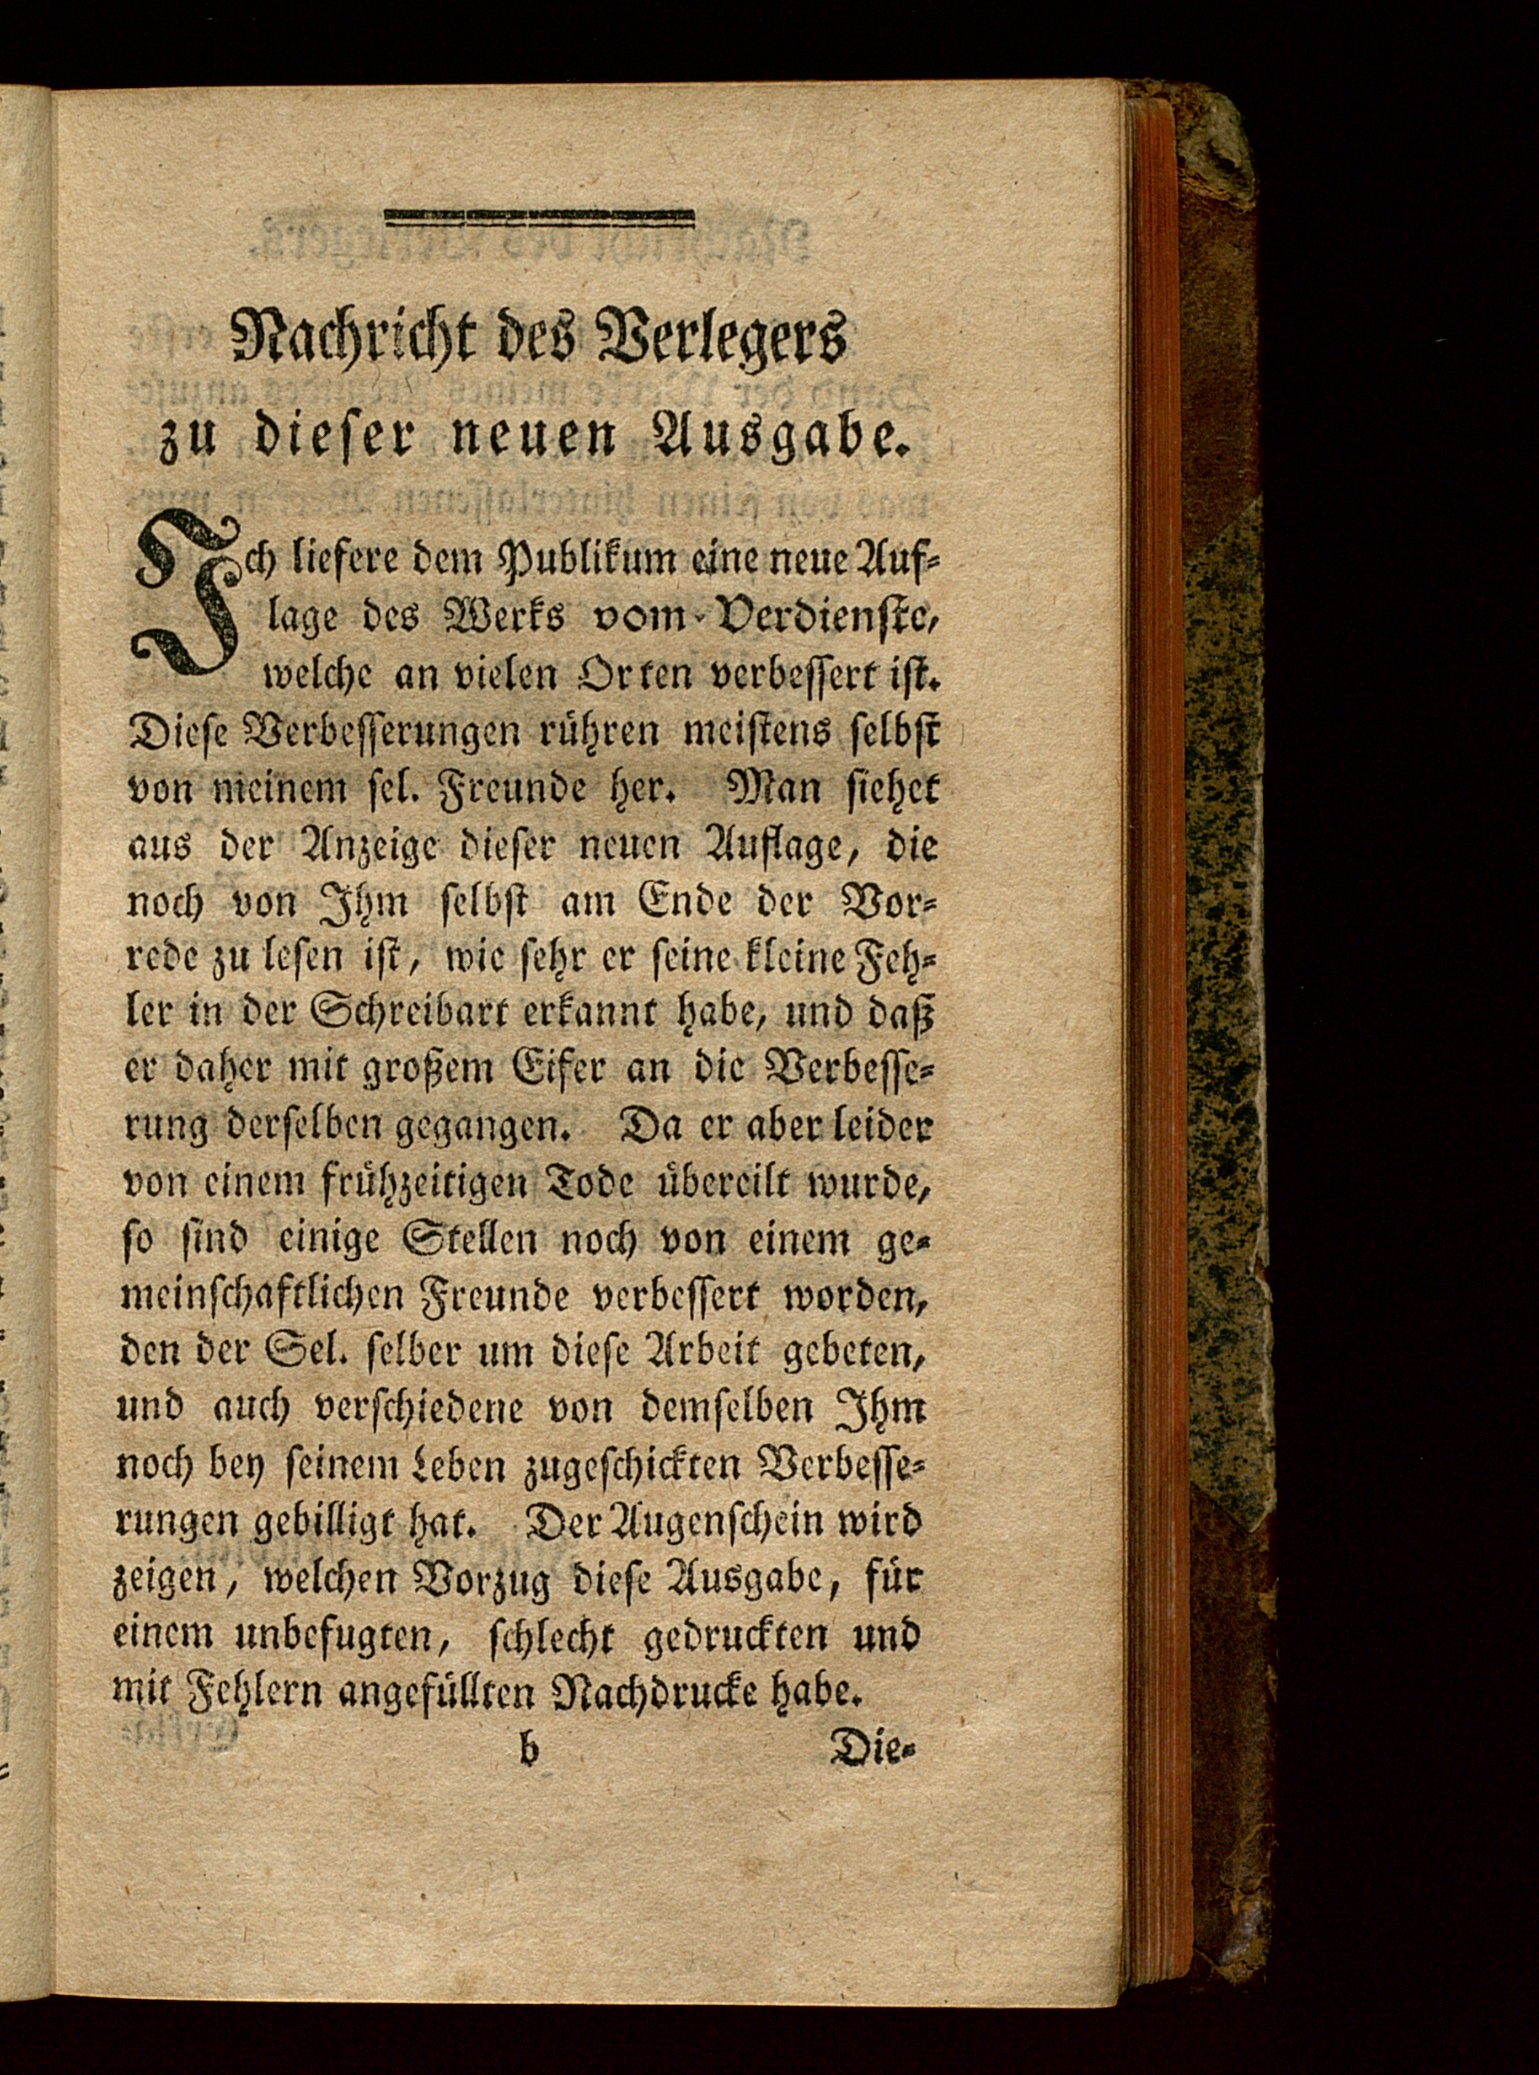 Nachricht des Verlegers
zu dieser neuen Ausgabe.
Ich liefere dem Publikum eine neue Auf-
lage des Werks vom Verdienste,
welche an vielen Orten verbessert ist.
Diese Verbesserungen rühren meistens selbst
von meinem sel. Freunde her. Man siehet
aus der Anzeige dieser neuen Auflage, die
noch von Ihm selbst am Ende der Vor-
rede zu lesen ist, wie sehr er seine kleine Feh-
ler in der Schreibart erkannt habe, und daß
er daher mit großem Eifer an die Verbesse-
rung derselben gegangen. Da er aber leider
von einem frühzeitigen Tode übereilt wurde,
so sind einige Stellen noch von einem ge-
meinschaftlichen Freunde verbessert worden,
den der Sel. selber um diese Arbeit gebeten,
und auch verschiedene von demselben Ihm
noch bey seinem Leben zugeschickten Verbesse-
rungen gebilligt hat. Der Augenschein wird
zeigen, welchen Vorzug diese Ausgabe, für
einem unbefugten, schlecht gedruckten und
mit Fehlern angefüllten Nachdrucke habe.
b Die-